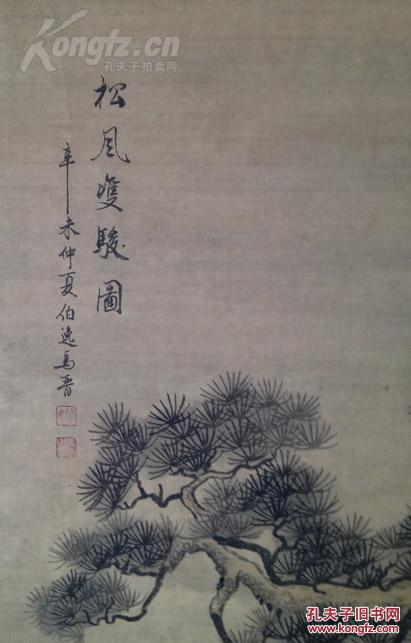 Kongfz.cn
孔夫子拍卖网
松风雙駿圖
辛未仲夏伯逸馬晋
孔夫子旧书网
www.kongfz.com